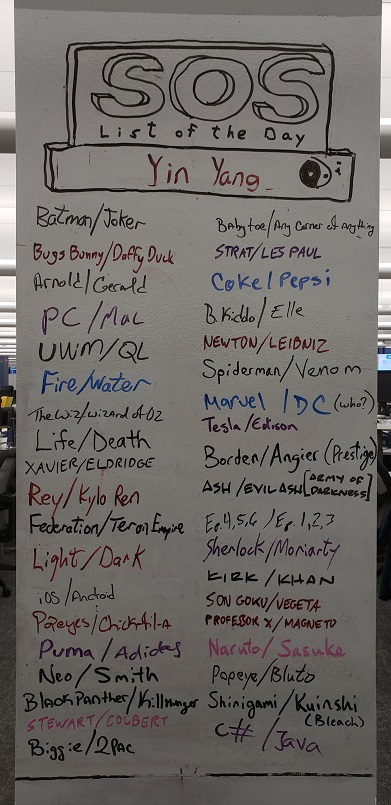 SOS
List of the Day
Yin Yang
Batman/Joker
Bugs Bunny/Daffy Duck
Arnold/Gerald
PC/Mac
UWiM/QL
Fire/Water
The Wiz/Wizard of Oz
Life/Death
XAVIER/ELDRIDGE
Rey/Kylo Ren
Federation/Teran Empire
Light/Dark
iOS/Android
Popeyes/Chickfil-A
Puma/Adidas
Neo/Smith
Black Panther/Killmonger
STEWART/COLBERT
Biggie/2Pac
Baby toe/Any Corner of anything
STRAT/LES PAUL
Coke/Pepsi
B.Kiddo/Elle
NEWTON/LEIBNIZ
Spiderman/Venom
Marvel/DC (who?)
Tesla/Edison
Borden/Angier (Prestige)
ASH/EVILASH [ARMY OF DARKNESS]
Ep.4,5,6/Ep.1,2,3
Sherlock/Moriarty
KIRK/KHAN
SON GOKU/VEGETA
PROFESSOR X/MAGNETO
Naruto/Sasuke
Popeye/Bluto
Shinigami/Kuinshi
(Bleach)
C#/Java